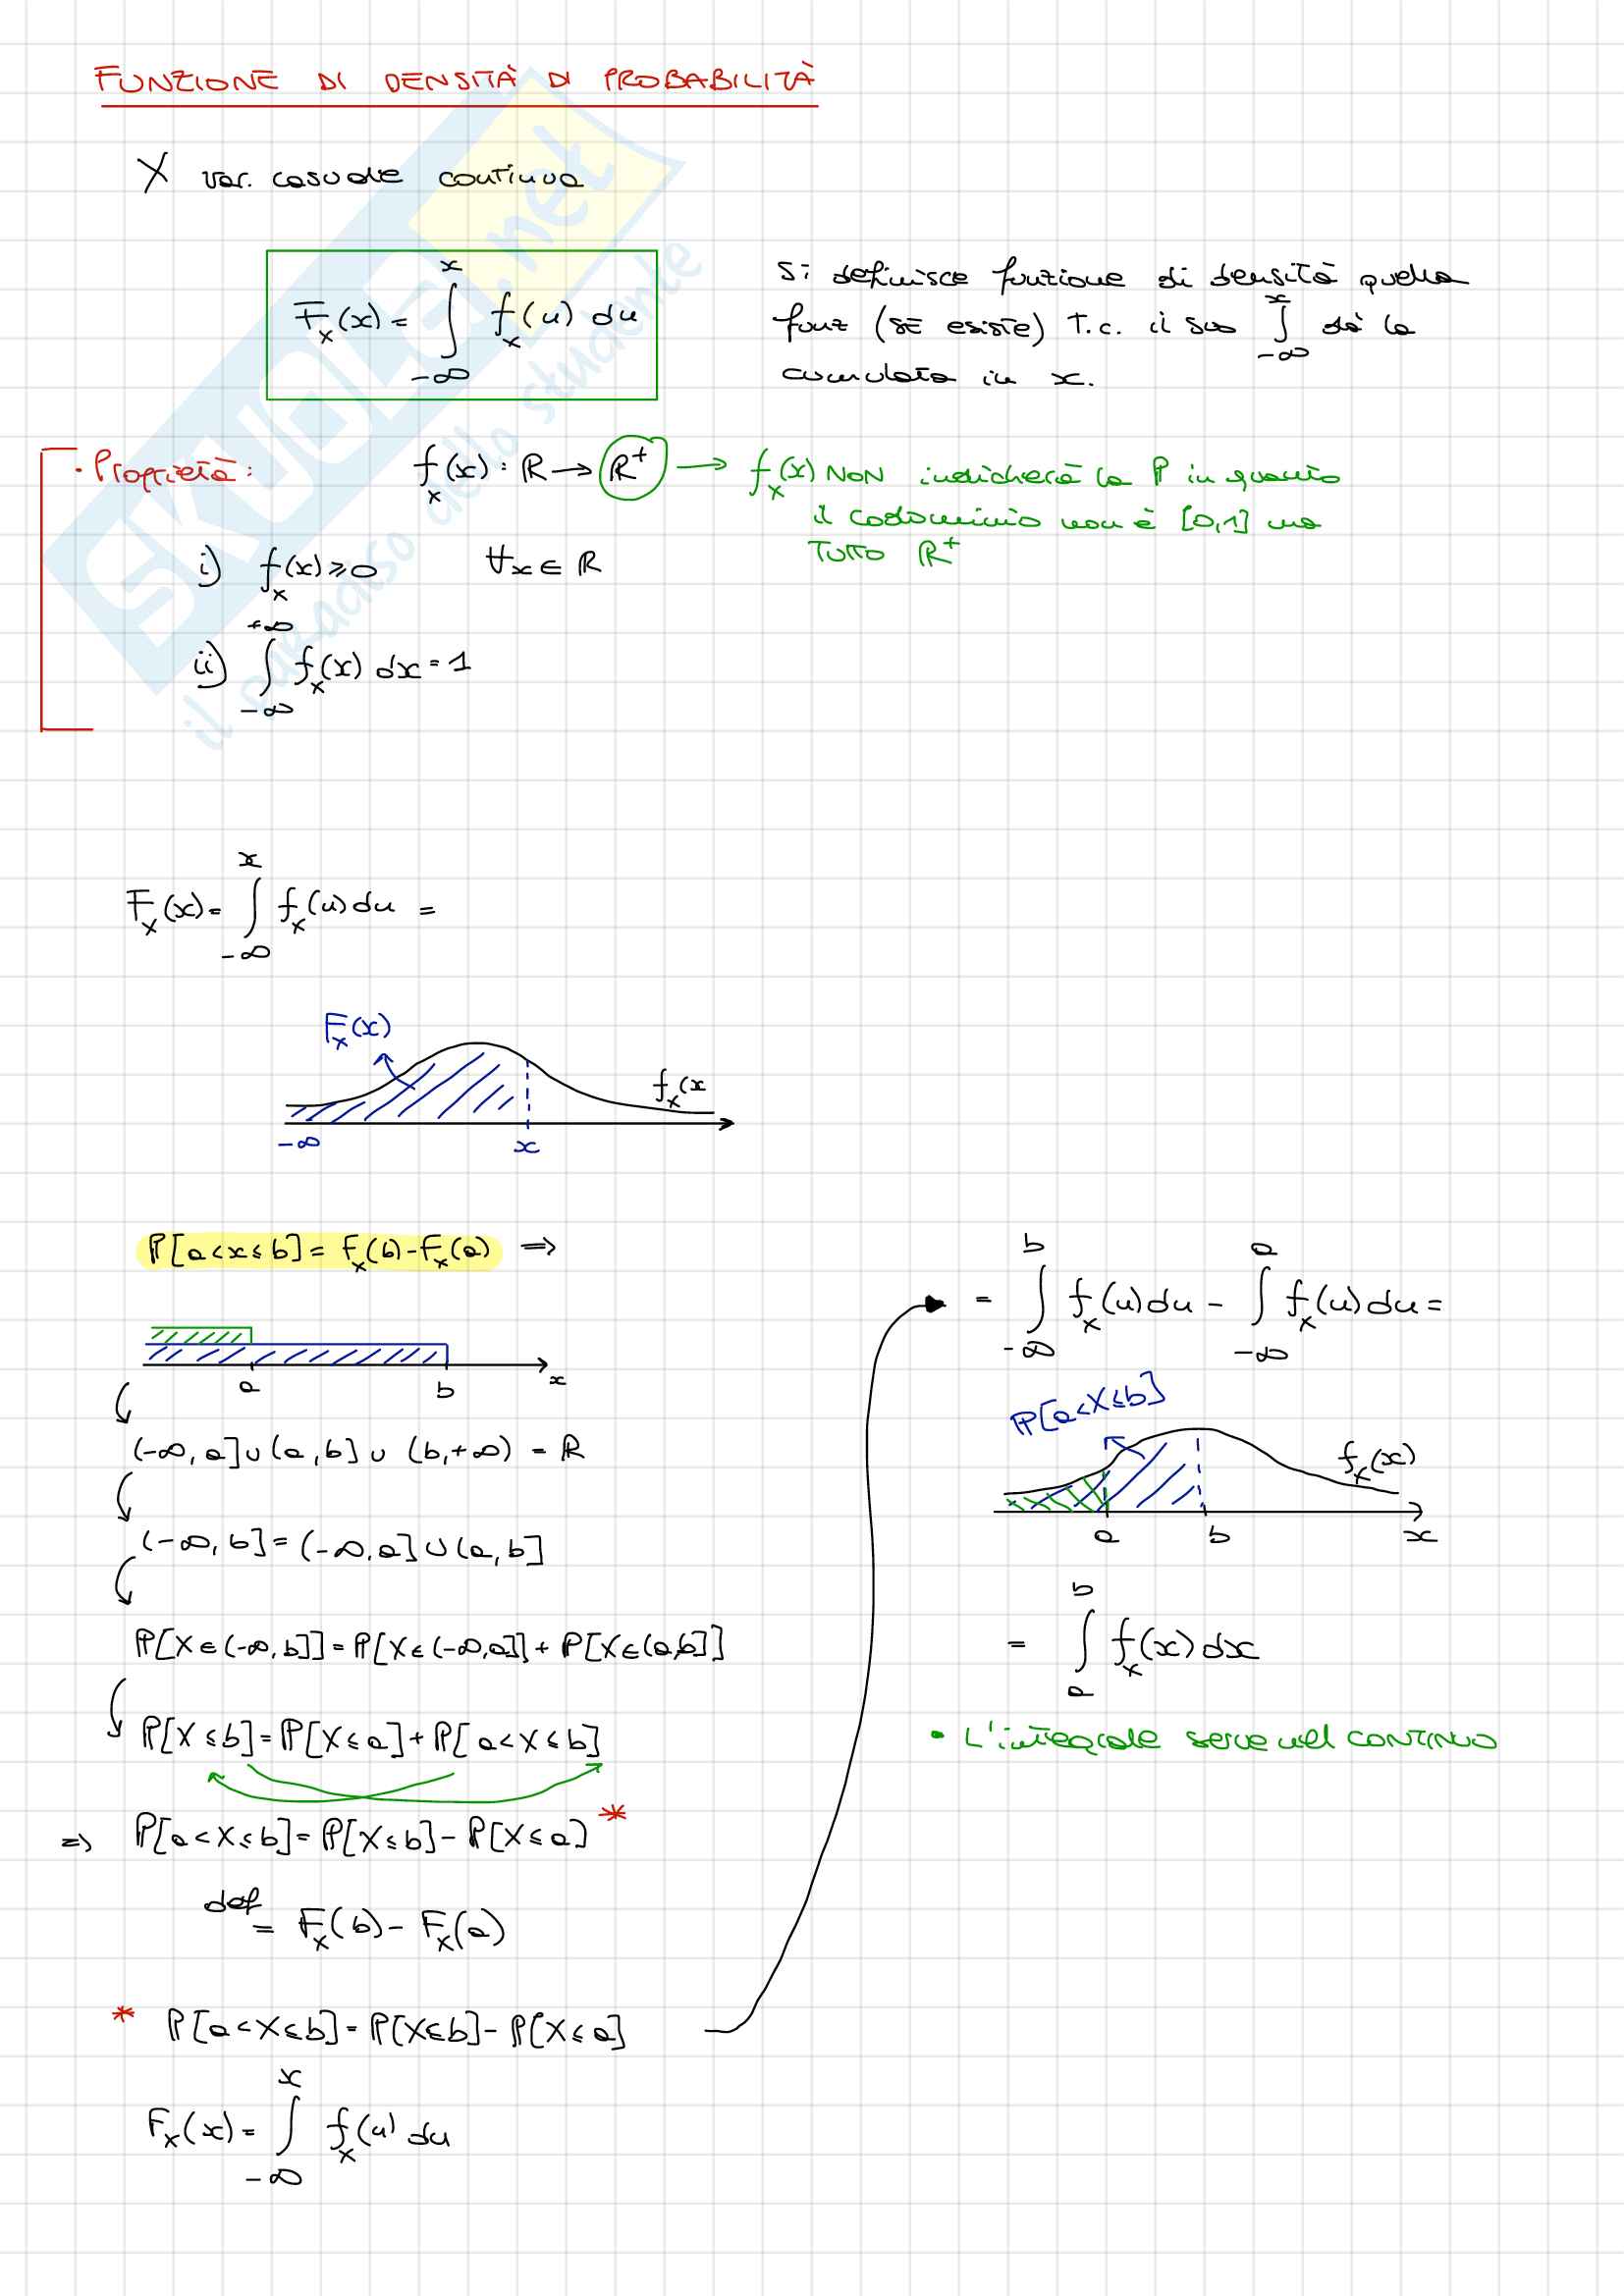 FUNZIONE DI DENSITÀ DI PROBABILITÀ
X var. casuale continua
F_X(x) = ∫_{-∞}^{x} f_X(u) du
Si definisce funzione di densità quella
funz (SE ESISTE) T.c. il suo ∫_{-∞}^{x} dà la
cumulata in x.
• Proprietà: f_X(x) : ℝ → ℝ⁺ → f_X(x) NON indicherà la ℙ in quanto
il codominio non è [0,1] ma
TUTTO ℝ⁺
i) f_X(x) ≥ 0 ∀x ∈ ℝ
ii) ∫_{-∞}^{+∞} f_X(x) dx = 1
SKUOLA.net
il paradiso dello studente
F_X(x) = ∫_{-∞}^{x} f_X(u) du =
F_X(x)
f_X(x
-∞ x
ℙ[a<x≤b] = F_X(b) - F_X(a) ⇒
a b x
(-∞, a] ∪ (a, b] ∪ (b, +∞) = ℝ
(-∞, b] = (-∞, a] ∪ (a, b]
ℙ[X∈(-∞, b]] = ℙ[X∈(-∞, a]] + ℙ[X∈(a,b]]
ℙ[X≤b] = ℙ[X≤a] + ℙ[a<X≤b]
⇒ ℙ[a<X≤b] = ℙ[X≤b] - ℙ[X≤a] *
def
= F_X(b) - F_X(a)
* ℙ[a<X≤b] = ℙ[X≤b] - ℙ[X≤a]
F_X(x) = ∫_{-∞}^{x} f_X(u) du
= ∫_{-∞}^{b} f_X(u) du - ∫_{-∞}^{a} f_X(u) du =
ℙ[a<X≤b]
f_X(x)
a b x
= ∫_{a}^{b} f_X(x) dx
• L'integrale serve nel CONTINUO